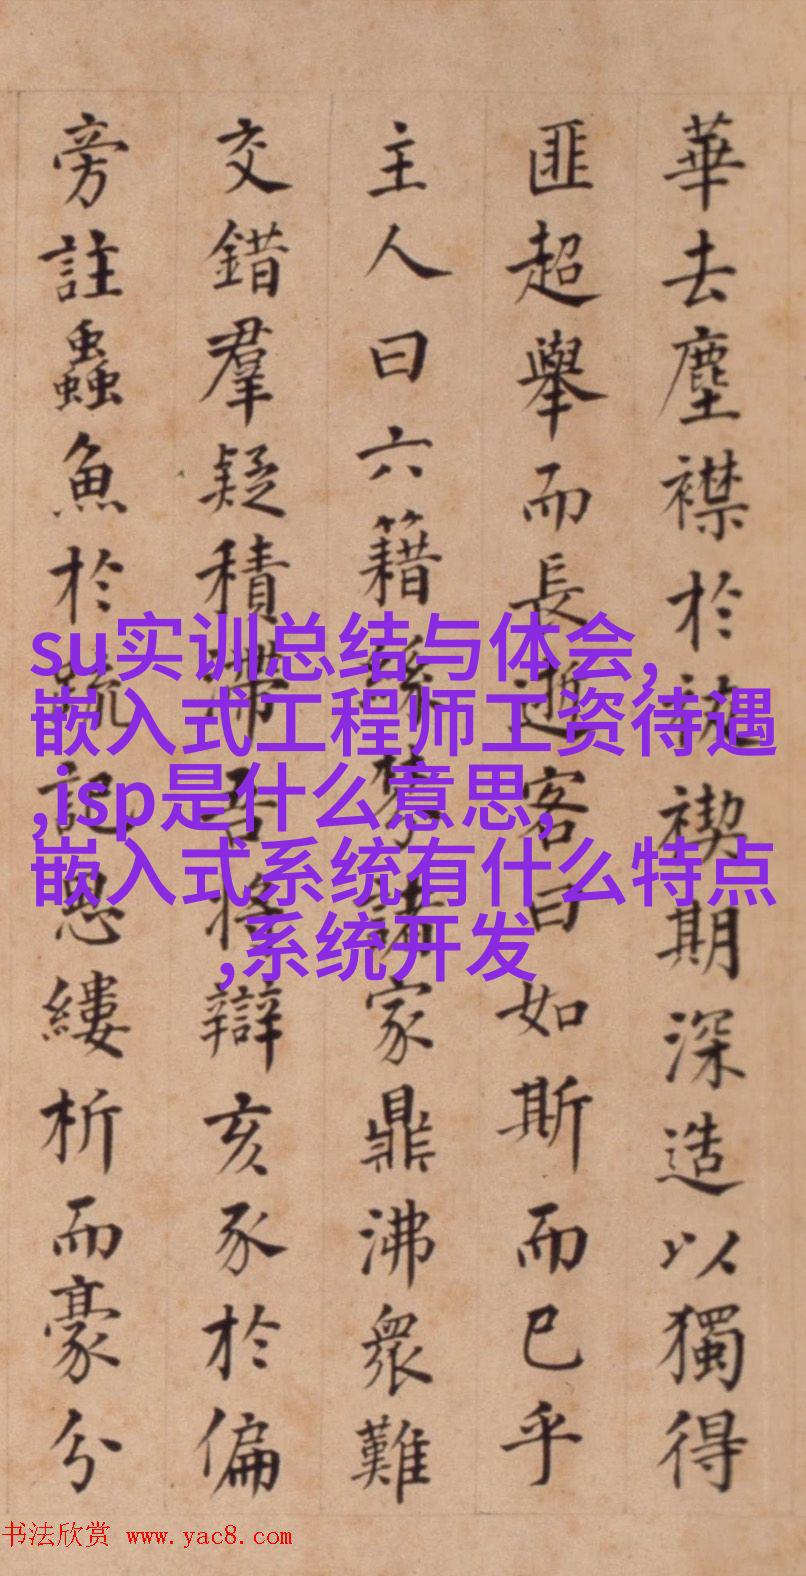 華去塵襟於禊期深造以獨得
匪超舉而長客曰如斯而已乎
主人曰六籍諸家鼎沸衆難
交錯羣疑積滯吾將辯亥豕於偏
旁註蟲魚於疏記思縷析而豪分
su实训总结与体会,
嵌入式工程师工资待遇
,isp是什么意思,
嵌入式系统有什么特点
,系统开发
书法欣赏 www.yac8.com